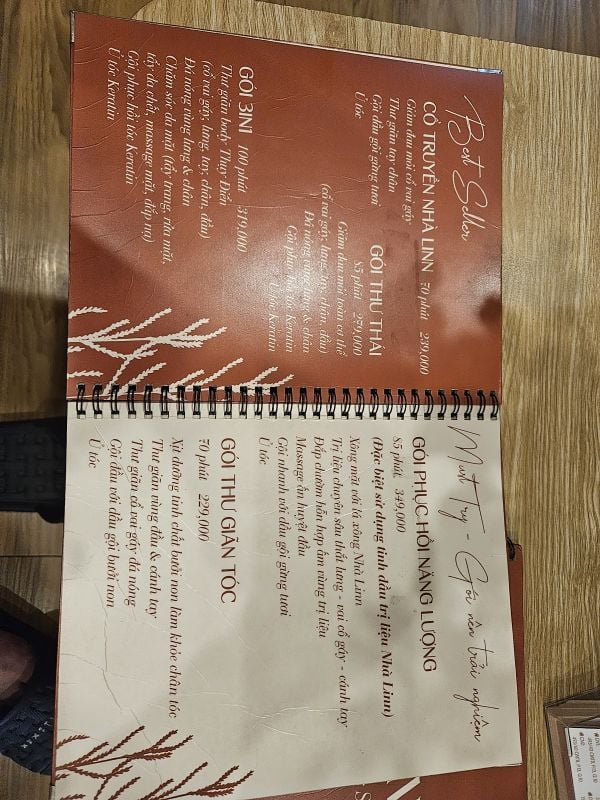 Best Seller
CỔ TRUYỀN NHÀ LINN 70 phút 239,000
Giảm đau mỏi cổ vai gáy
Thư giãn tay chân
Gội đầu gội gừng tươi
Ủ tóc
GÓI THƯ THÁI
85 phút 279,000
Giảm đau mỏi toàn cơ thể
(cổ vai gáy, lưng, tay, chân, đầu)
Đá nóng vùng lưng & chân
Gội phục hồi tóc Keratin
Ủ tóc Keratin
GÓI 3IN1 100 phút 319,000
Thư giãn body Thụy Điển
(cổ vai gáy, lưng, tay, chân, đầu)
Đá nóng vùng lưng & chân
Chăm sóc da mặt (tẩy trang, rửa mặt,
tẩy da chết, massage mặt, đắp nạ)
Gội phục hồi tóc Keratin
Ủ tóc Keratin
Must Try - Gói nên trải nghiệm
GÓI PHỤC HỒI NĂNG LƯỢNG
85 phút 349,000
(Đặc biệt sử dụng tinh dầu trị liệu Nhà Linn)
Xông mặt với lá xông Nhà Linn
Trị liệu chuyên sâu thắt lưng - vai cổ gáy - cánh tay
Đắp chườm hỗn hợp ấm nóng trị liệu
Massage ấn huyệt đầu
Gội nhanh với dầu gội gừng tươi
Ủ tóc
GÓI THƯ GIÃN TÓC
70 phút 229,000
Xịt dưỡng tinh chất bưởi non làm khỏe chân tóc
Thư giãn vùng đầu & cánh tay
Thư giãn cổ vai gáy đá nóng
Gội đầu với dầu gội bưởi non
Ủ tóc